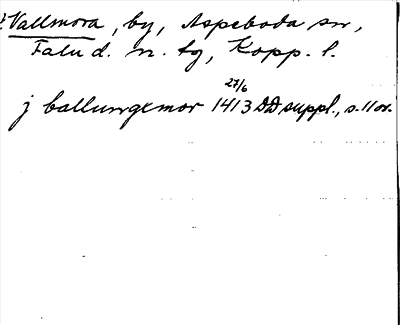 Vallmora, by, Aspeboda sn,
Falu d. n. tg, Kopp. l.
27/6
j ballungxmor 1413 DD suppl., s. 11 or.